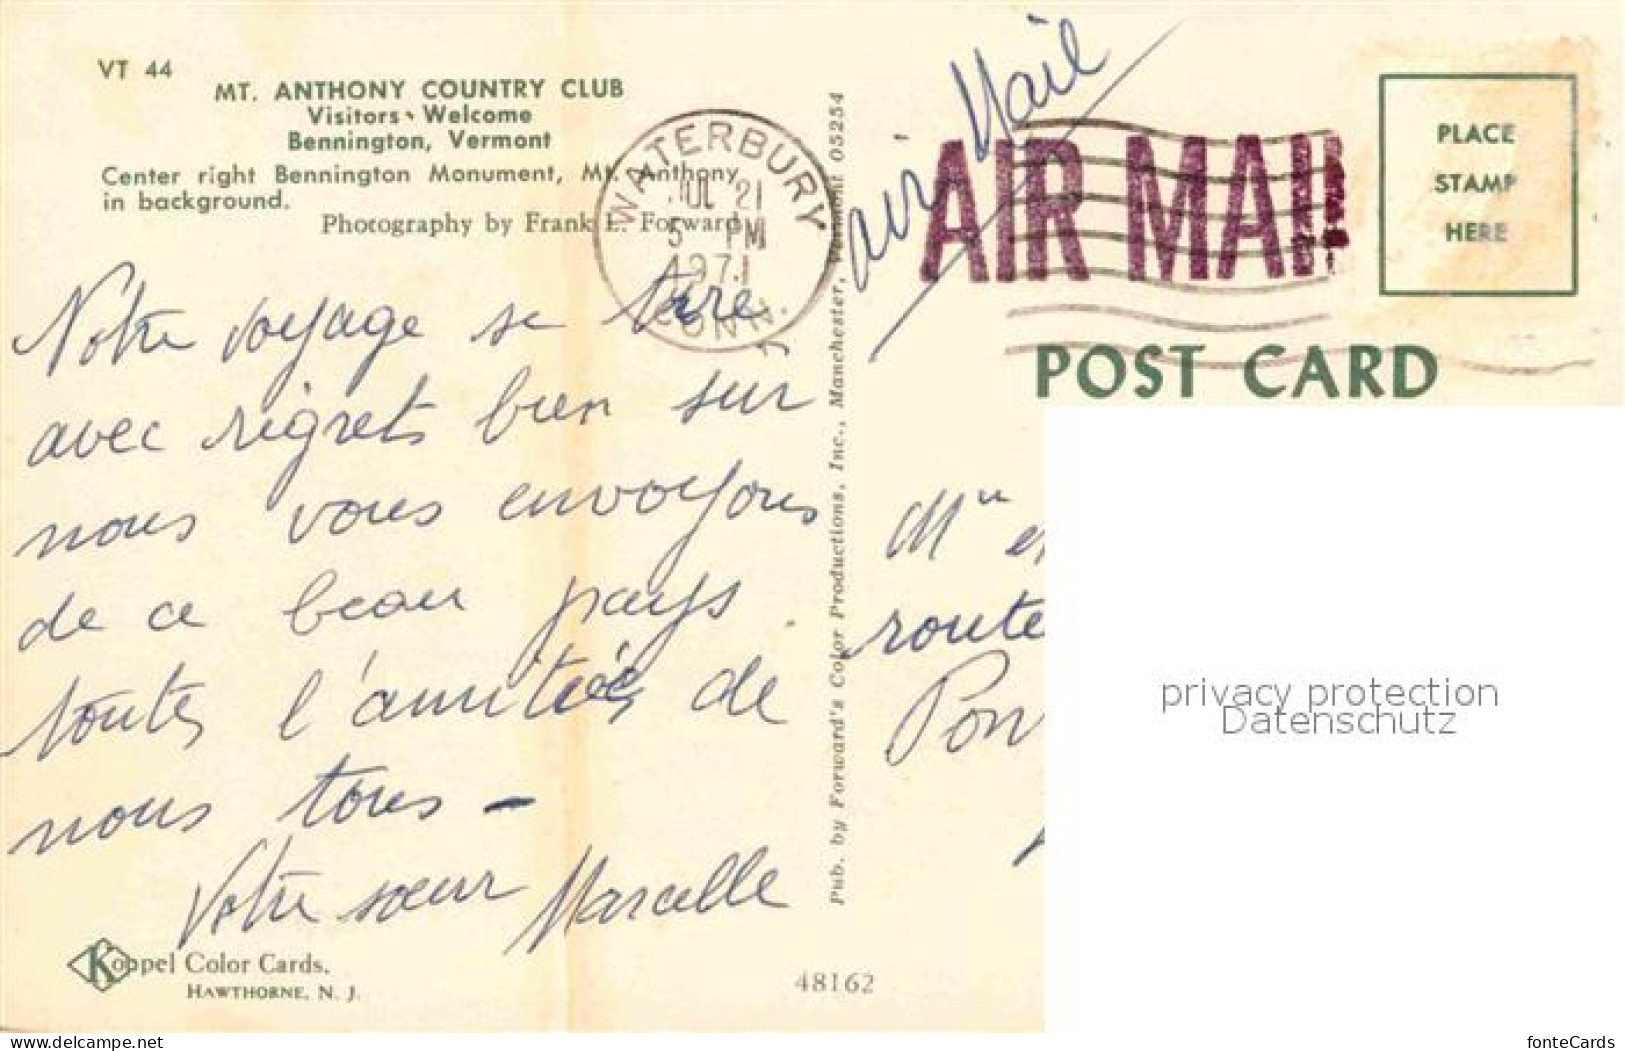 VT 44
MT. ANTHONY COUNTRY CLUB
Visitors Welcome
Bennington, Vermont
Center right Bennington Monument, Mt. Anthony
in background.
Photography by Frank L. Forward
WATERBURY
JUL 21
5 PM
1971
CONN.
Notre voyage se
avec regrets bien sur
nous vous envoyons
de ce beau pays.
toutes l'amitiés de
nous tous -
Votre sœur Marcelle
Koppel Color Cards,
HAWTHORNE, N. J.
48162
Pub. by Forward's Color Productions, Inc., Manchester, Vermont 05254
air Mail
AIR MAIL
PLACE
STAMP
HERE
POST CARD
route
Pon
privacy protection
Datenschutz
www.delcampe.net
fonteCards